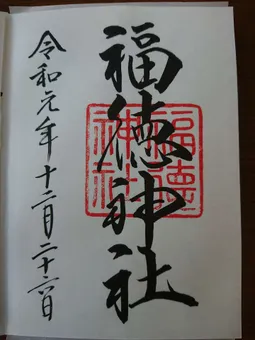 福徳神社
福德
神社
令和元年十二月二十六日